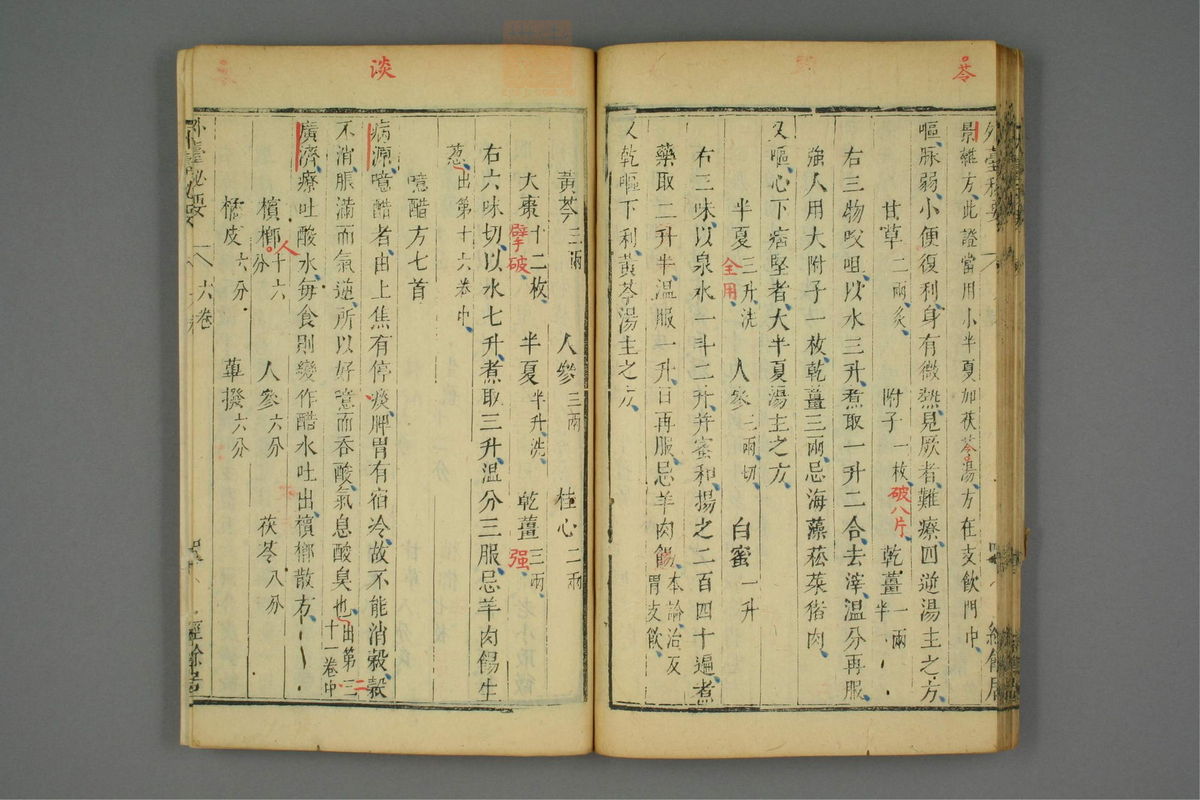 苓
景雜方此證當用小半夏加茯苓湯方在支飲門中
嘔脉弱小便復利身有微熱見厥者難療四逆湯主之方
甘草二兩炙 附子一枚破八片 乾薑一兩半
右三物㕮咀以水三升煮取一升二合去滓溫分再服
強人用大附子一枚乾薑三兩忌海藻菘菜猪肉
又嘔心下痞堅者大半夏湯主之方
半夏三升洗全用 人參三兩切 白蜜一升
右三味以泉水一斗二升并蜜和揚之二百四十遍煮
藥取二升半溫服一升日再服忌羊肉餳本論治反胃支飲
又乾嘔下利黃芩湯主之方
談
黃芩三兩 人參三兩 桂心二兩
大棗十二枚擘破 半夏半升洗 乾薑三兩 强
右六味切以水七升煮取三升溫分三服忌羊肉餳生
葱出第十六卷中
噫醋方七首
病源噫醋者由上焦有停痰脾胃有宿冷故不能消穀穀
不消脹滿而氣逆所以好噫而吞酸氣息酸臭也出第二十一卷中
廣濟療吐酸水每食則變作醋水吐出檳榔散方
檳榔十六分 人參六分 茯苓八分
橘皮六分 蓽撥六分
外臺秘要 六卷 經餘居